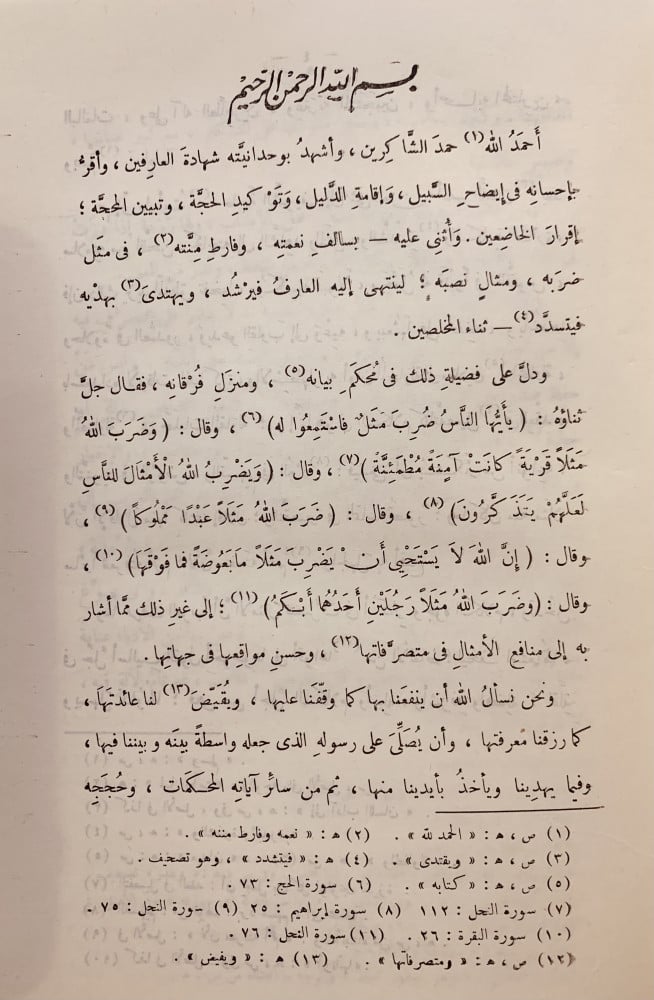 بسم الله الرحمن الرحيم
أَحمَدُ الله(١) حمدَ الشَّاكِرين، وأشهدُ بوحدانيَّته شهادةَ العارفين، وأقرُّ
بإحسانِه فى إيضاحِ السَّبيل، وَإقامةِ الدَّليل، وَتَوْكيدِ الحجَّة، وتبيين المحجَّة؛
إقرارَ الخاضِعين. وَأُثنِى عليه — بسالفِ نعمتِه، وفارطِ مِنَّته(٢)، فى مثَل
ضرَبه، ومثالٍ نصبَه؛ لينتهى إليه العارفُ فيرْشُد، ويهتدىَ(٣) بهدْيِه
فيتسدَّد(٤) — ثناء المخلصين.
ودلَّ على فضيلةِ ذلك فى مُحْكَمِ بيانه(٥)، ومنزَلِ فُرْقانِه، فقال جلَّ
ثناؤهُ: (يأَيُّهَا النَّاسُ ضُرِبَ مَثَلٌ فاسْتَمِعُوا له)(٦)، وقال: (وَضَرَبَ اللهُ
مَثَلاً قَرْيَةً كانَتْ آمِنَةً مُطْمَئِنَّةً)(٧)، وقال: (وَيَضْرِبُ اللهُ الْأَمْثَالَ للنَّاسِ
لَعَلَّهُمْ يَتَذَكَّرُونَ)(٨)، وقال: (ضَرَبَ اللهُ مَثَلاً عَبْدًا مَمْلُوكاً)(٩)،
وقال: (إِنَّ اللهَ لاَ يَسْتَحْيِى أَنْ يَضْرِبَ مَثَلاً مابَعُوضَةً فما فَوْقَهَا)(١٠)،
وقال: (وضَرَبَ اللهُ مَثَلاً رَجُلَيْنِ أَحَدُهُما أَبْكَمُ)(١١)؛ إلى غيرِ ذلك ممَّا أشار
به إلى منافعِ الأمثالِ فى متصرَّفاتِها(١٢)، وحسنِ مواقعِها فى جهاتِها.
ونحن نسألُ الله أن ينفعَنا بها كما وقَّفَنا عليها، ويقَيِّضَ(١٣) لنا عائدتَهَا،
كما رزقنا معرفتها، وأن يُصلِّىَ على رسولهِ الذى جعله واسطةً بينَه وبيننا فيها،
وفيما يهدِينا ويأخذُ بأيدينا منها، ثم من سائرِ آياتِه المحكَمات، وحُججِه
(١) ص، ﻫ: « الحمد لله ». (٢) ﻫ: « نعمه وفارط مننه ».
(٣) ص، ﻫ: « ويقتدى ». (٤) ﻫ: « فيتشدد »، وهو تصحيف.
(٥) ص، ﻫ: « كتابه ». (٦) سورة الحج: ٧٣.
(٧) سورة النحل: ١١٢ (٨) سورة إبراهيم: ٢٥ (٩) سورة النحل: ٧٥.
(١٠) سورة البقرة: ٢٦. (١١) سورة النحل: ٧٦.
(١٢) ص، ﻫ: « ومتصرفاتها ». (١٣) ﻫ: « ويفيض ».